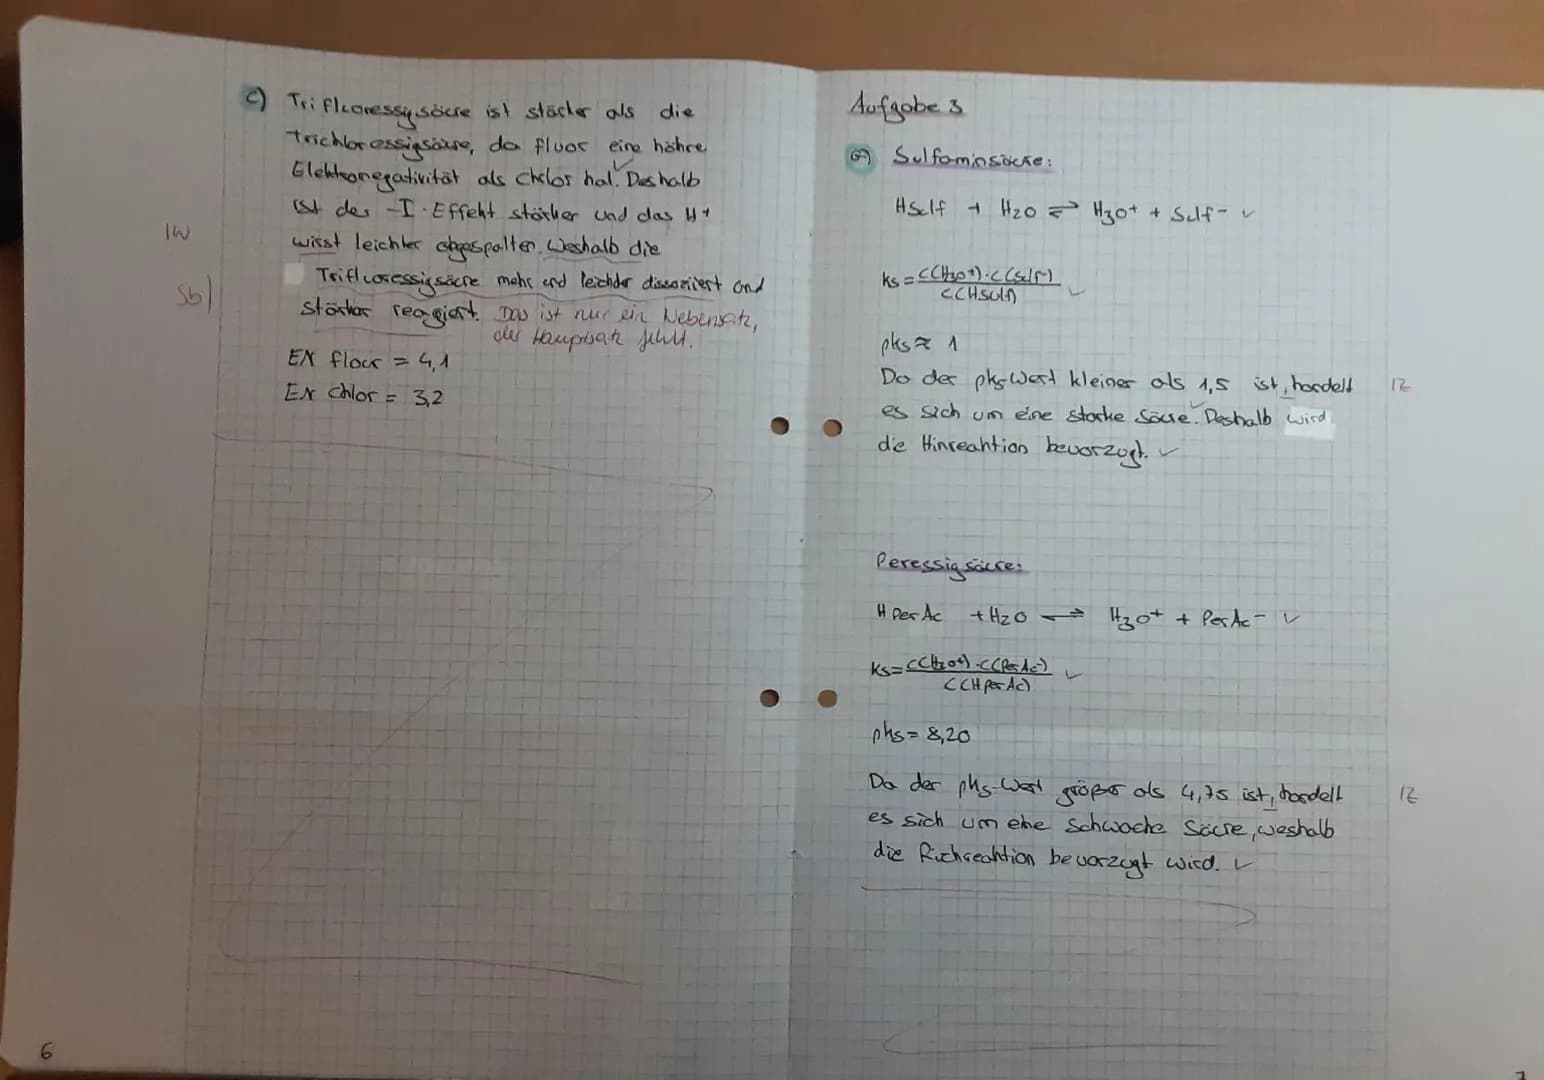 c) Trifluoressigsäure ist stärker als die
trichloressigsäure, da fluor eine höhre
Elektronegativität als Chlor hat. Deshalb
ist der -I-Effekt stärker und das H+
1W
wird leichter abgespalten. Weshalb die
Trifluoressigsäure mehr und leichter dissoziiert und
Sb
stärker reagiert. Das ist nur ein Nebensatz,
der Hauptsatz fehlt.
EN fluor = 4,1
EN Chlor = 3,2
6
Aufgabe 3
a) Sulfaminsäure:
HSulf + H2O ⇌ H3O+ + Sulf- ✓
Ks = c(H3O+)·c(Sulf-) ✓
c(HSulf)
pks ≈ 1
Da der pks-Wert kleiner als 1,5 ist, handelt 1Z
es sich um eine starke Säure. Deshalb wird
die Hinreaktion bevorzugt. ✓
Peressigsäure:
HPerAc + H2O ⇌ H3O+ + PerAc- ✓
Ks = c(H3O+)·c(PerAc-) ✓
c(HPerAc)
pks = 8,20
Da der pks-Wert größer als 4,75 ist, handelt 1Z
es sich um eine schwache Säure, weshalb
die Rückreaktion bevorzugt wird. ✓